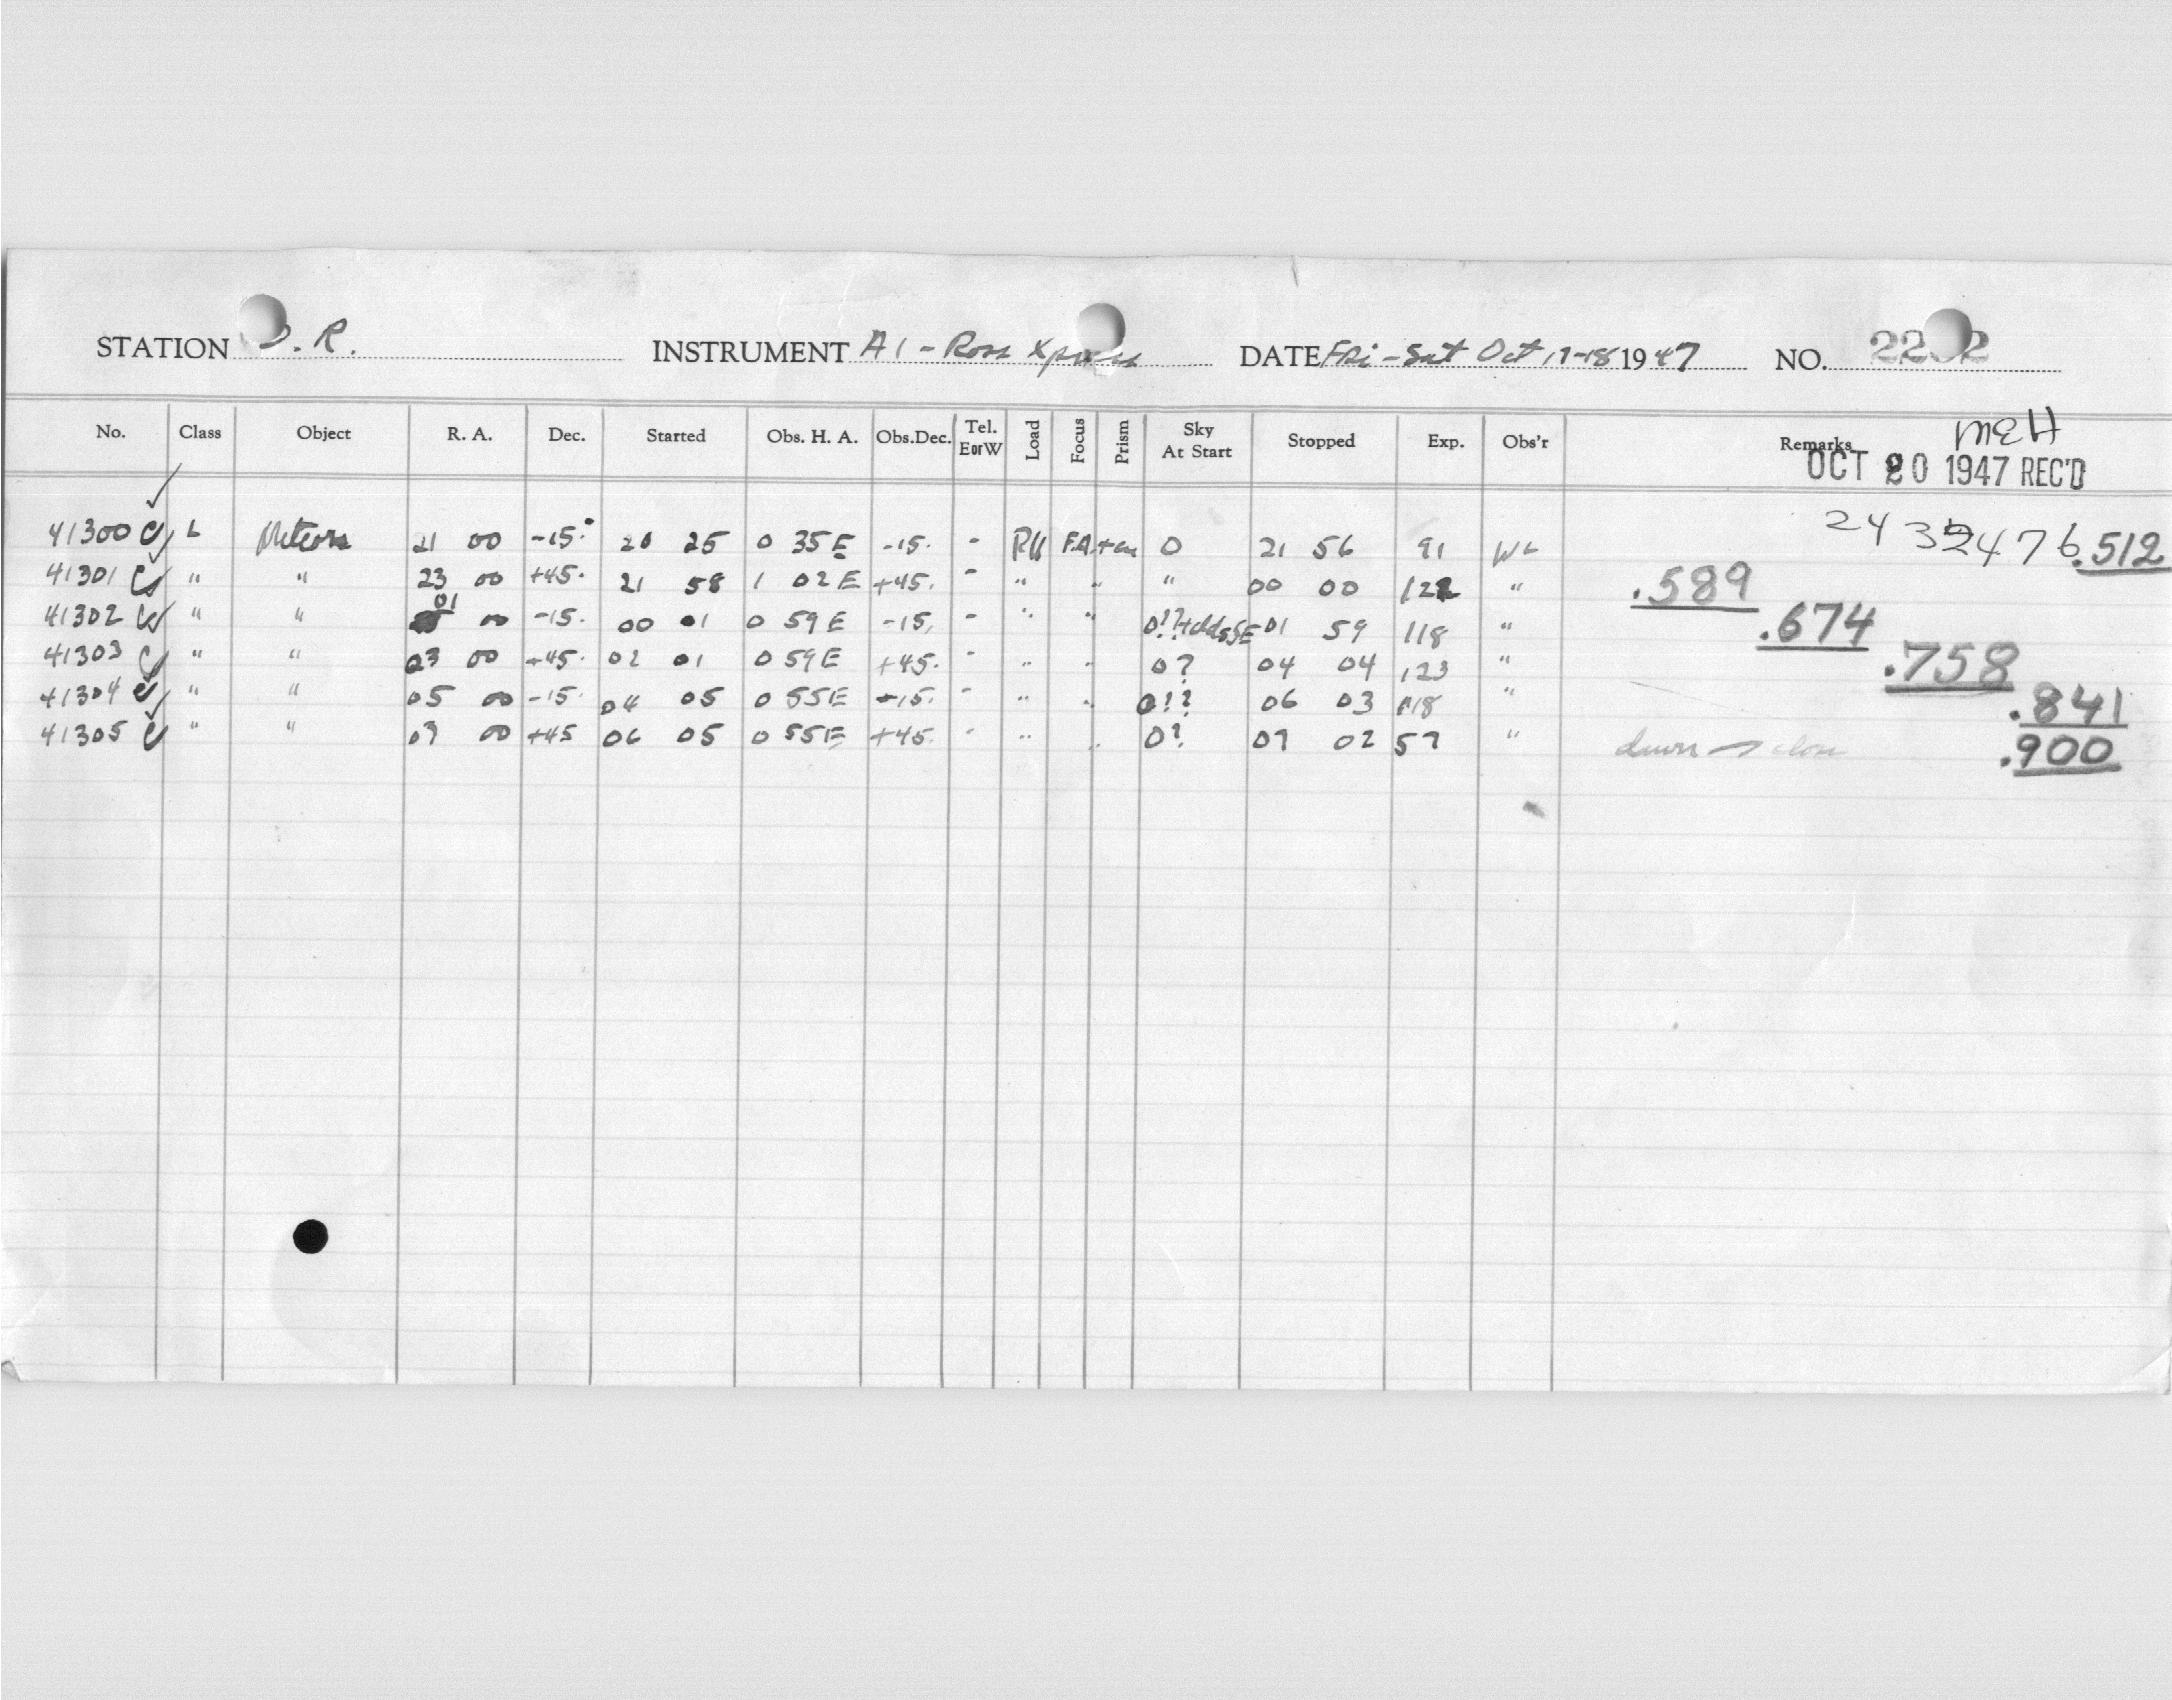 STATION D. R. INSTRUMENT A1 - Ross Xpress DATE Fri - Sat Oct 17-18 1947 NO. 22 2
No. Class Object R. A. Dec. Started Obs. H. A. Obs.Dec. Tel. E or W Load Focus Prism Sky At Start Stopped Exp. Obs'r Remarks
MEH
OCT 20 1947 REC'D
41300 L Meteors 21 00 -15° 20 25 0 35 E -15. - RH F.A. 0 21 56 91 2432476.512
41301 " " 23 00 +45. 21 58 1 02 E +45. - " " " 00 00 122 " .589
41302 " " 01 00 -15. 00 01 0 59 E -15. - " " 0?? 01 59 118 " .674
41303 " " 03 00 +45. 02 01 0 59 E +45. - " " 0? 04 04 123 " .758
41304 " " 05 00 -15. 04 05 0 55 E -15. - " " 0?? 06 03 118 " .841
41305 " " 07 00 +45 06 05 0 55 E +45. - " " 0? 07 02 57 " dawn .900